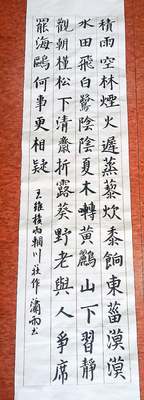 積雨空林煙火遲蒸藜炊黍餉東菑漠漠
水田飛白鷺陰陰夏木囀黃鸝山下習靜
觀朝槿松下清齋折露葵野老與人爭席
罷海鷗何事更相疑
王維積雨輞川莊作 瀟雨书